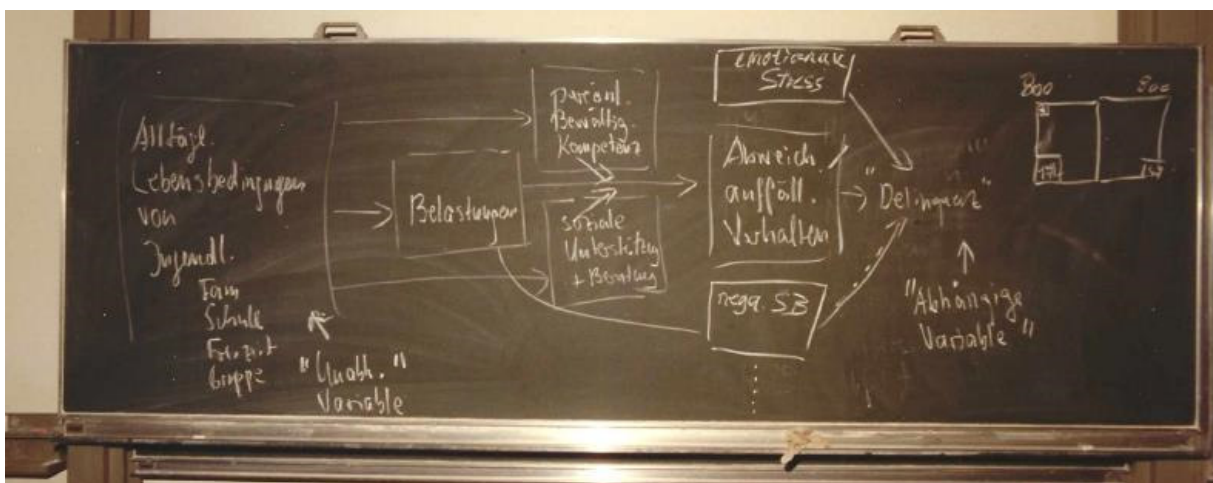 Alltägl.
Lebensbedingungen
von
Jugendl.
Fam
Schule
Freizeit
Gruppe
"Unabh."
Variable
Belastungen
Bewältig.
Kompetenz
soziale
Unterstützung
+ Beratung
emotionaler
Stress
Abweich.
auffäll.
Verhalten
nega. SB
"Delinquenz"
"Abhängige
Variable"
800
800